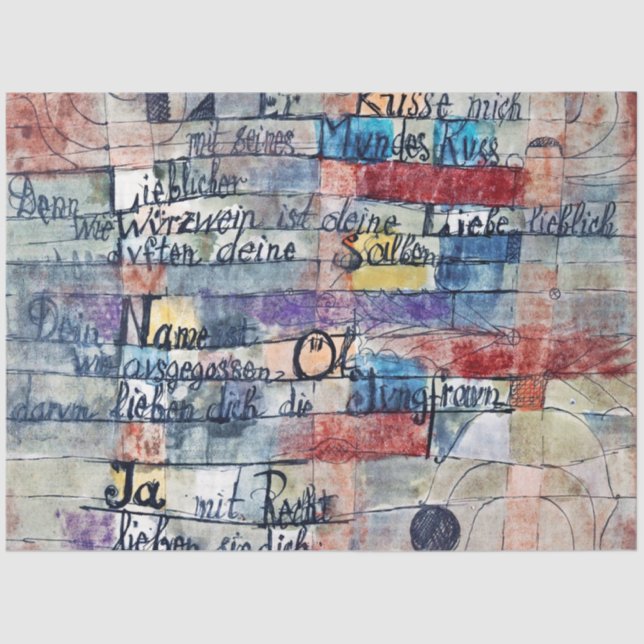 Er Küsse mich
mit seines Mundes Kuss
Denn Lieblicher
wie Würzwein ist deine Liebe. lieblich
duften deine Salben.
Dein Name ist
wie ausgegossen Öl
darum lieben dich die Jungfraun
Ja mit Recht
lieben sie dich.